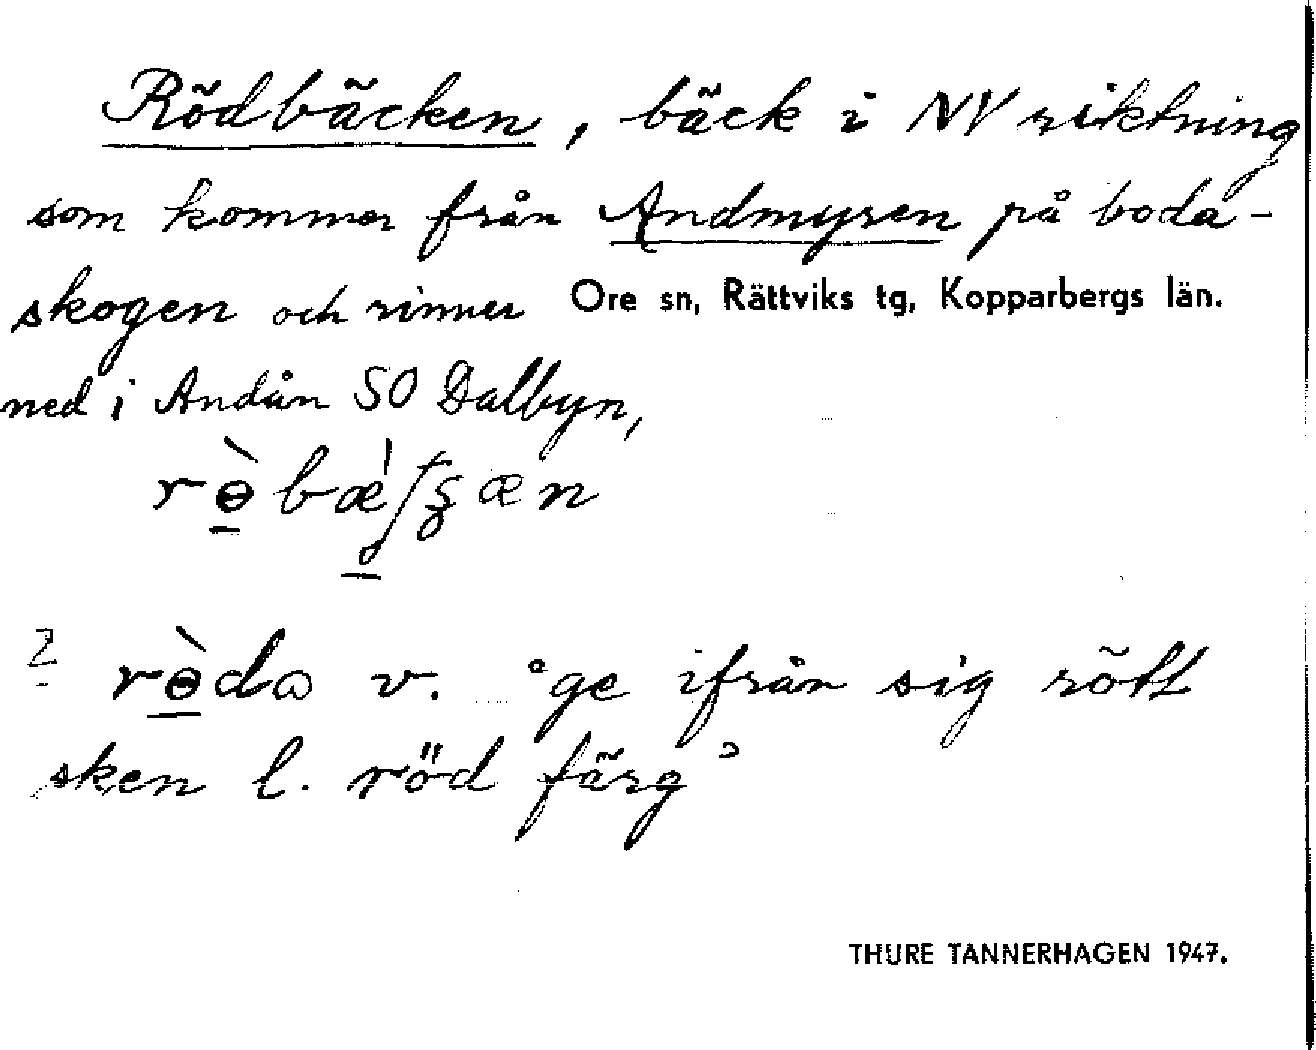 Rödbäcken, bäck i NV riktning
som kommer från Andmyren på boda-
skogen och rinner Ore sn, Rättviks tg, Kopparbergs län.
ned i Andån SO Dalbyn,
rɵ̀bæ̀ʃʂæn
? rɵ̀da v. 'ge ifrån sig rött
sken l. röd färg'
THURE TANNERHAGEN 1947.